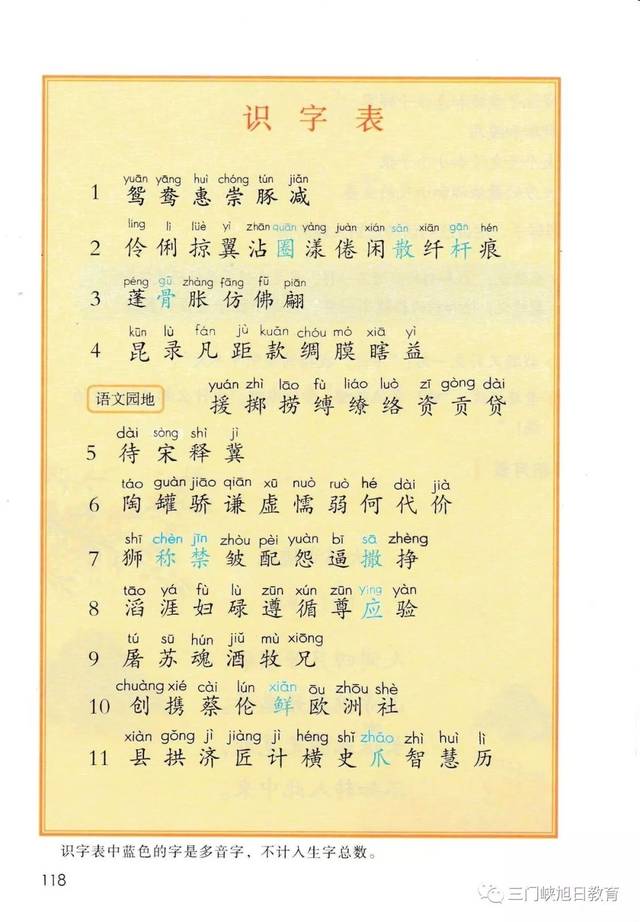 识字表
yuān yāng huì chóng tún jiǎn
1 鸳 鸯 惠 崇 豚 减
líng lì lüè yì zhān quān yàng juàn xián sàn xiān gān hén
2 伶 俐 掠 翼 沾 圈 漾 倦 闲 散 纤 杆 痕
péng gū zhàng fǎng fú piān
3 蓬 骨 胀 仿 佛 翩
kūn lù fán jù kuǎn chóu mó xiā yì
4 昆 录 凡 距 款 绸 膜 瞎 益
yuán zhì lāo fù liáo luò zī gòng dài
语文园地 援 掷 捞 缚 缭 络 资 贡 贷
dài sòng shì jì
5 待 宋 释 冀
táo guàn jiāo qiān xū nuò ruò hé dài jià
6 陶 罐 骄 谦 虚 懦 弱 何 代 价
shī chèn jīn zhòu pèi yuàn bī sā zhèng
7 狮 称 禁 皱 配 怨 逼 撒 挣
tāo yá fù lù zūn xún zūn yìng yàn
8 滔 涯 妇 碌 遵 循 尊 应 验
tú sū hún jiǔ mù xiōng
9 屠 苏 魂 酒 牧 兄
chuàng xié cài lún xiǎn ōu zhōu shè
10 创 携 蔡 伦 鲜 欧 洲 社
xiàn gǒng jì jiàng jì héng shǐ zhǎo zhì huì lì
11 县 拱 济 匠 计 横 史 爪 智 慧 历
识字表中蓝色的字是多音字，不计入生字总数。
118
三门峡旭日教育